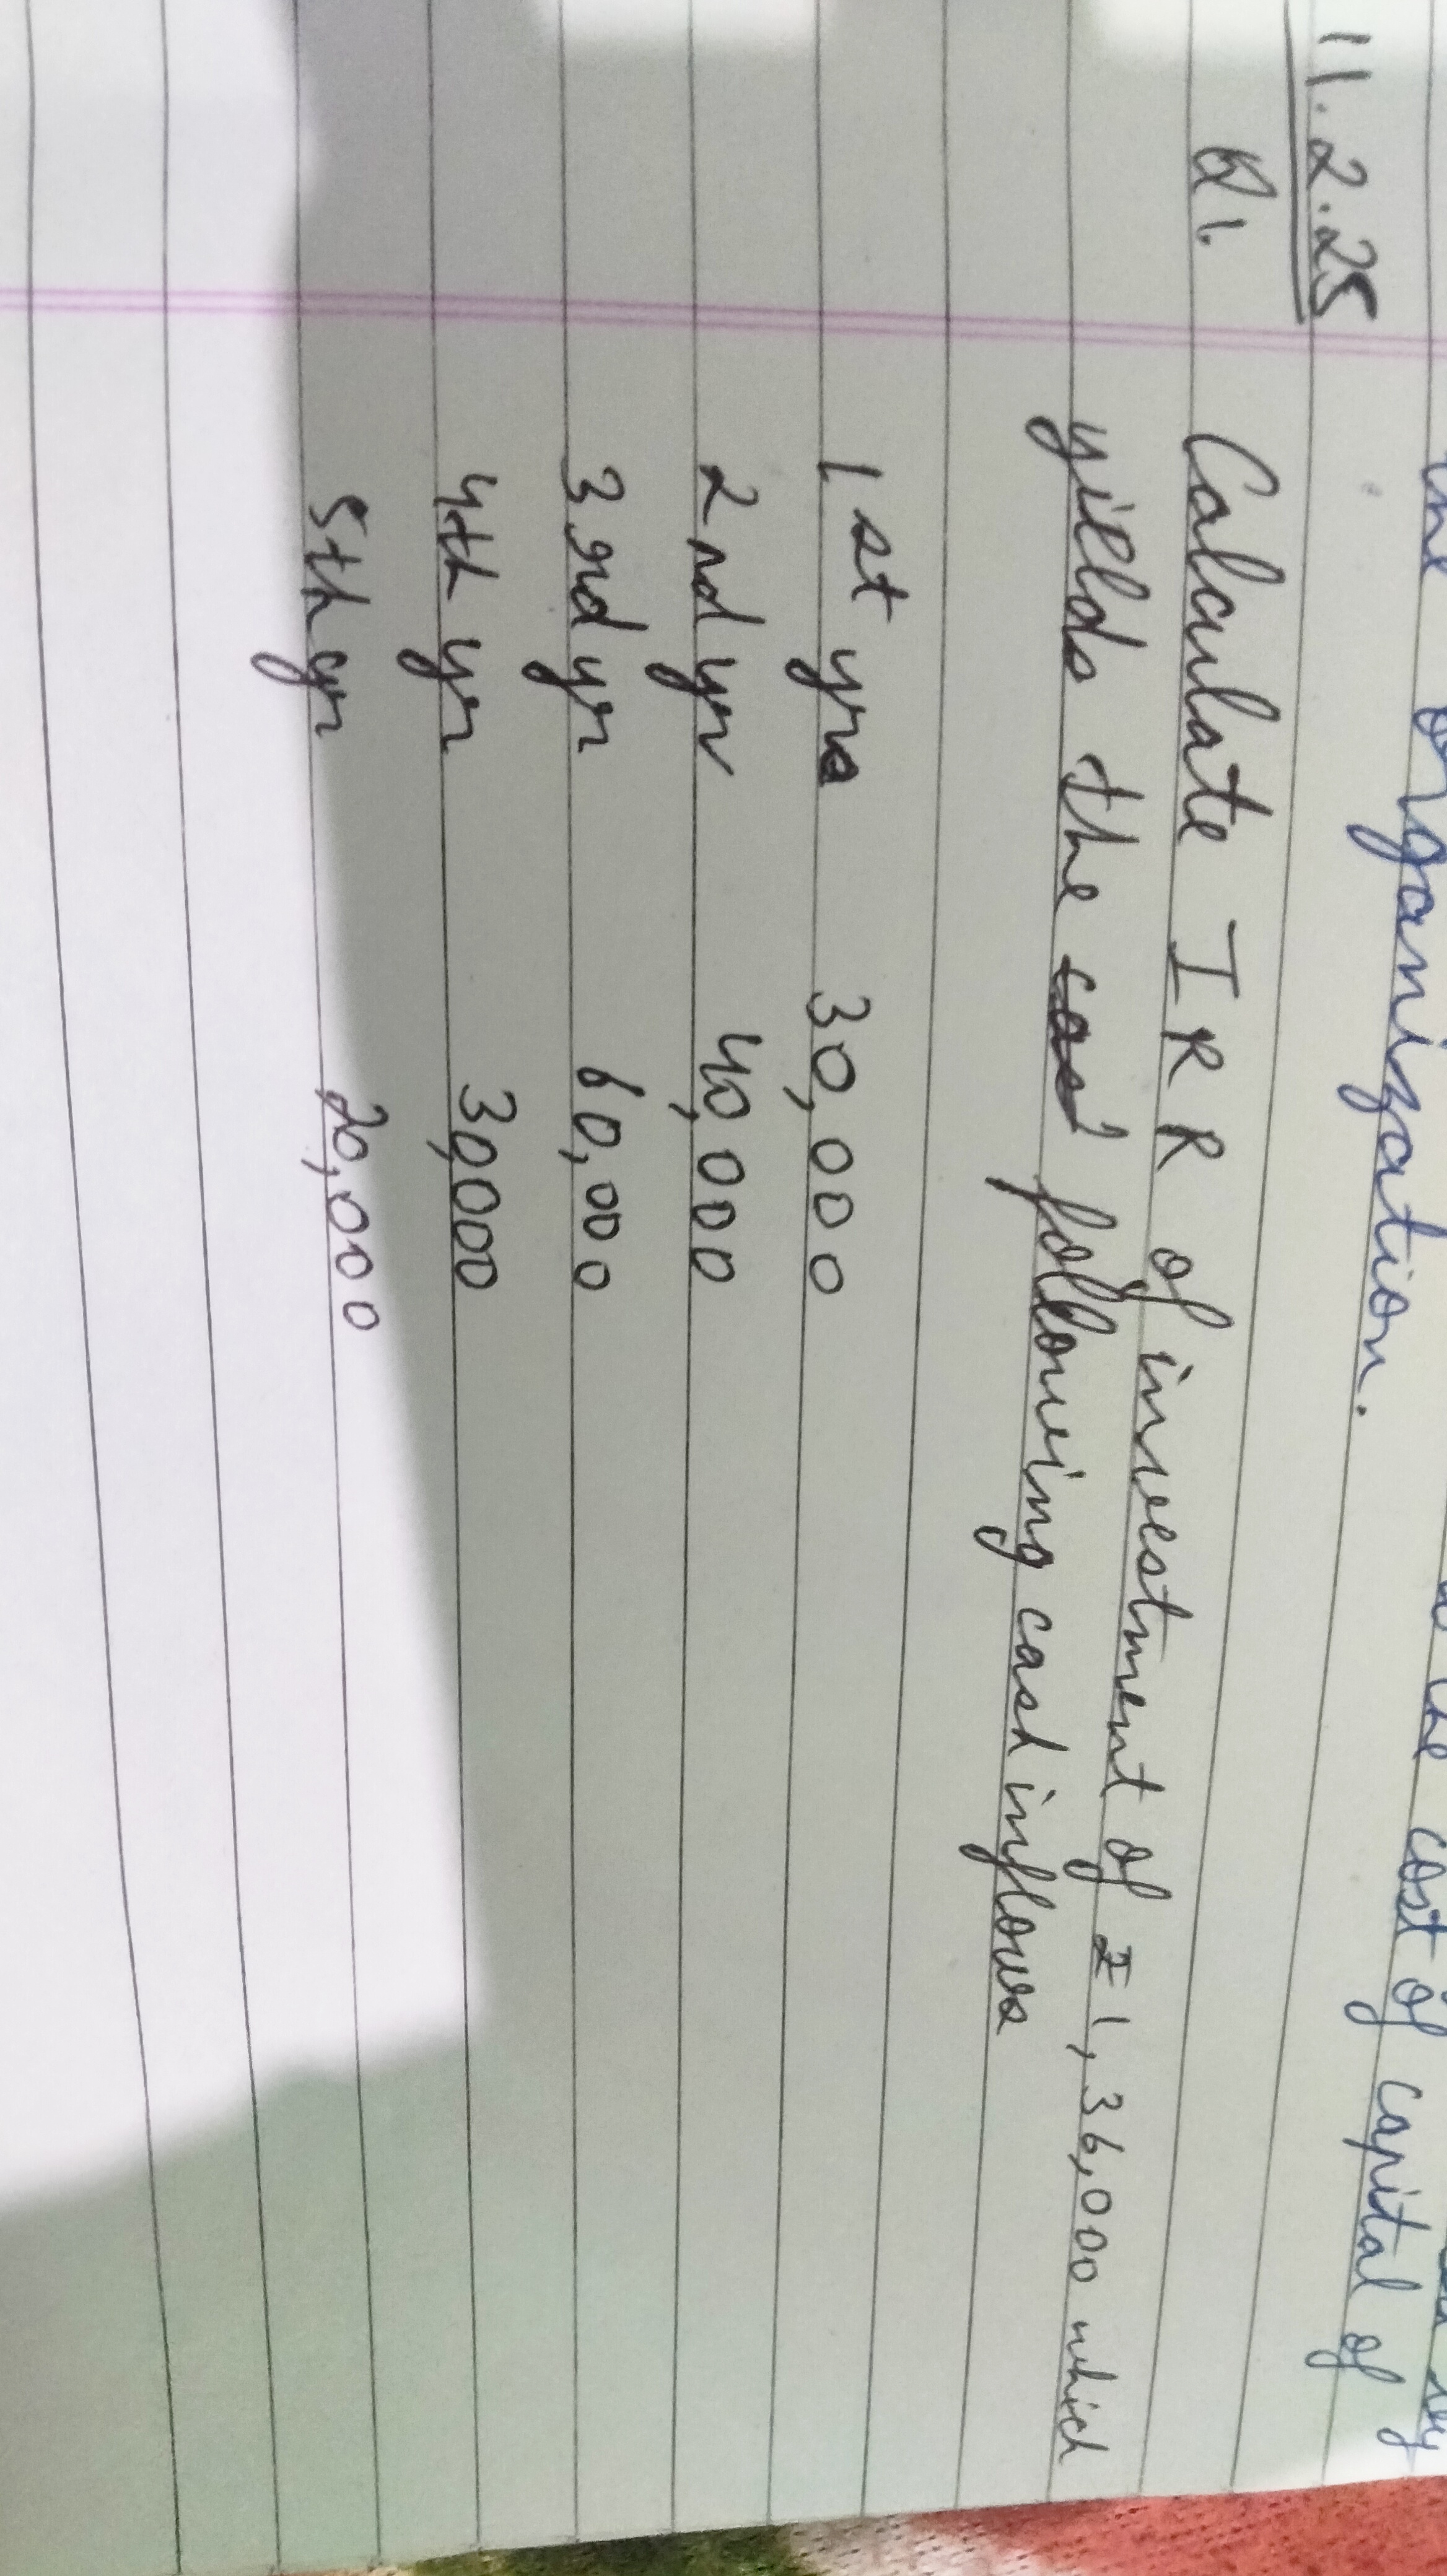 the cost of capital of
the organization.
11.2.25
Q1. Calculate IRR of investment of ₹1,36,000 which
yields the following cash inflows
1st yrs 30,000
2nd yr 40,000
3rd yr 60,000
4th yr 30,000
5th yr 20,000